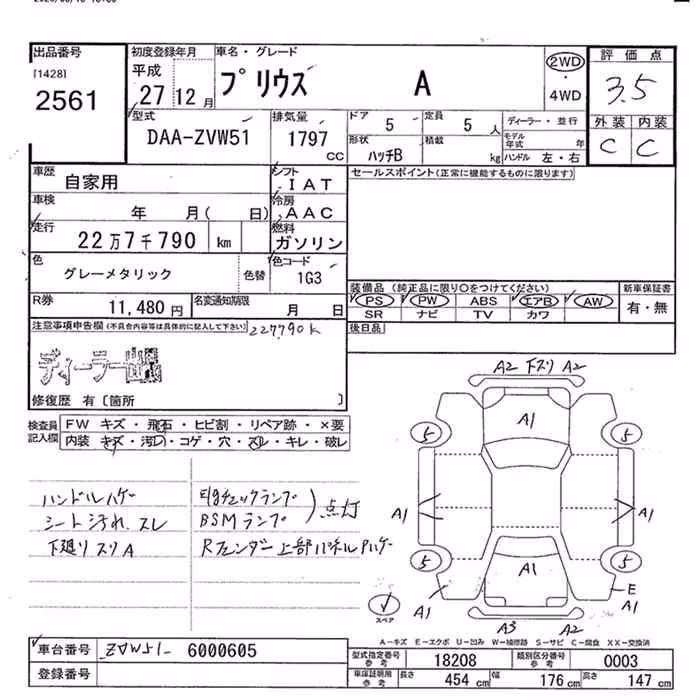 出品番号
[1428]
2561
初度登録年月
平成
27 12 月
車名・グレード
プリウス A
2WD
・
4WD
評価点
3.5
外装 内装
C C
型式
DAA-ZVW51
排気量
1797
CC
ドア 5
定員 5 人
形状
ハッチB
積載
kg
ディーラー・並行
モデル
年式 年
ハンドル 左・右
車歴
自家用
シフト
IAT
車検
年 月( 日)
冷房
AAC
走行
22万7千790 km
燃料
ガソリン
色
グレーメタリック
色替
色コード
1G3
R券
11,480 円
名変通知期限
月 日
セールスポイント(正常に機能するものに限ります)
装備品 (純正品に限り○をつけてください)
PS PW ABS エアB AW
SR ナビ TV カワ
新車保証書
有・無
後日品
注意事項申告欄(不具合内容等は具体的に記入して下さい)
227790K
ディーラー出品
修復歴 有〔箇所 〕
検査員
記入欄
FW キズ・飛石・ヒビ割・リペア跡・×要
内装 キズ・汚レ・コゲ・穴・スレ・キレ・破レ
ハンドルハゲ
シート汚れ、スレ
下廻りスリA
E/gチェックランプ
BSMランプ
点灯
Rフェンダー上部パネルPハゲ
A2 下スリ A2
A1
5 5
A1 A1
5 5
A1
A1
E
A1
A3 A2
スペア
A-キズ E-エクボ U-凹み W-補修跡 S-サビ C-腐食 XX-交換済
車台番号
ZVW51- 6000605
登録番号
型式指定番号
参考
18208
類別区分番号
参考
0003
車庫証明用
参考
長さ 454 cm
幅 176 cm
高さ 147 cm